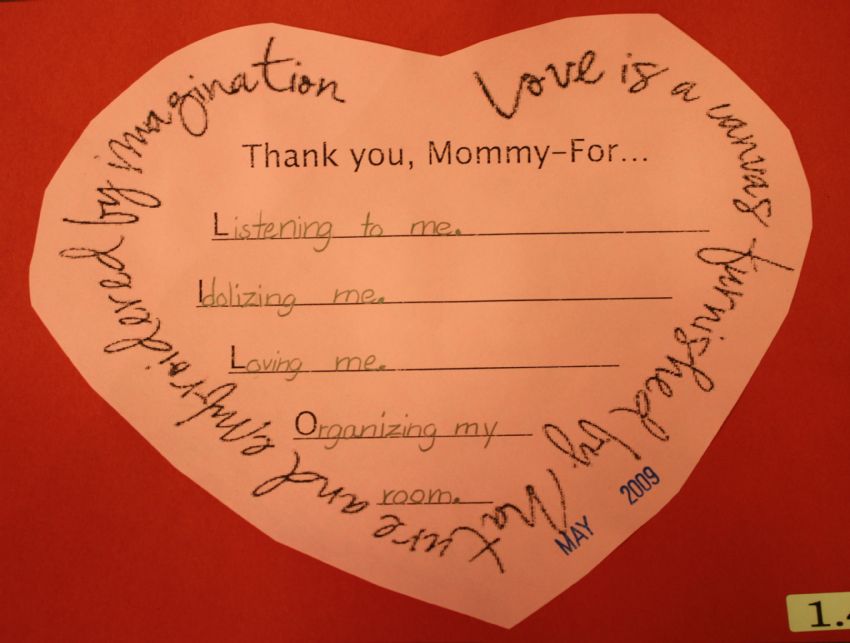 Love is a canvas furnished by Nature and embroidered by imagination
Thank you, Mommy-For...
Listening to me.
Idolizing me.
Loving me.
Organizing my
room.
MAY 2009